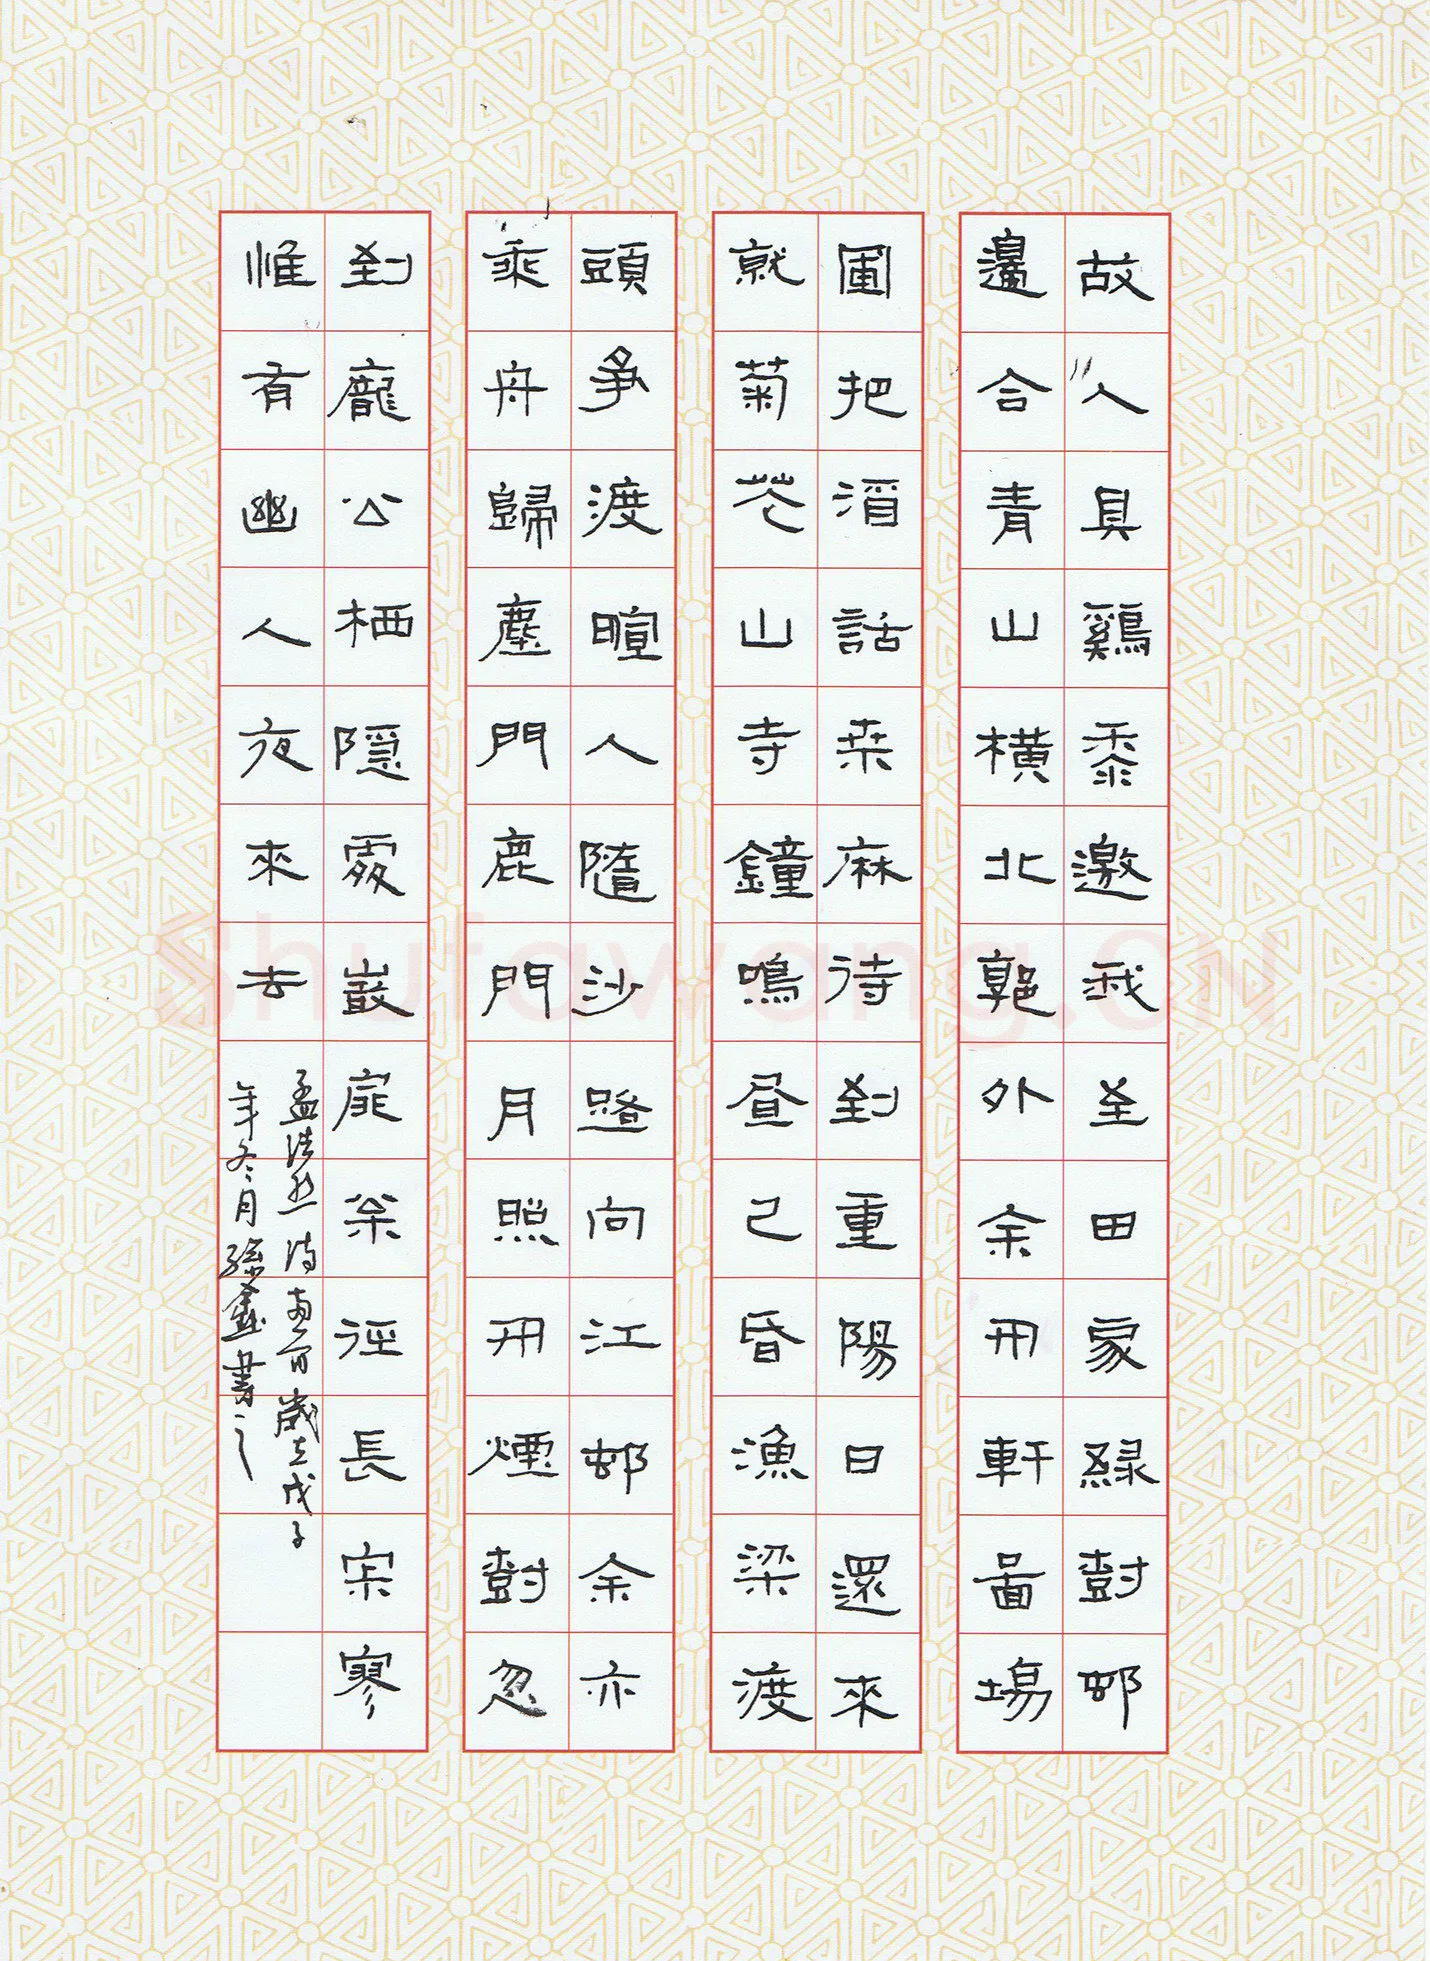 故人具鷄黍邀我至田家緑尌邨
邊合青山橫北郭外余开軒面場
圃把酒話桒麻待到重陽日還來
就菊花山寺鐘鳴昼已昏漁梁渡
頭爭渡暄人隨沙路向江邨余亦
乘舟歸塵門鹿門月照开煙尌忽
到龐公栖隱處巖扉松徑長宋寥
惟有幽人夜來去
孟浩然詩两首歲在戊子
年冬月孫鑫書之
Shufawang.CN